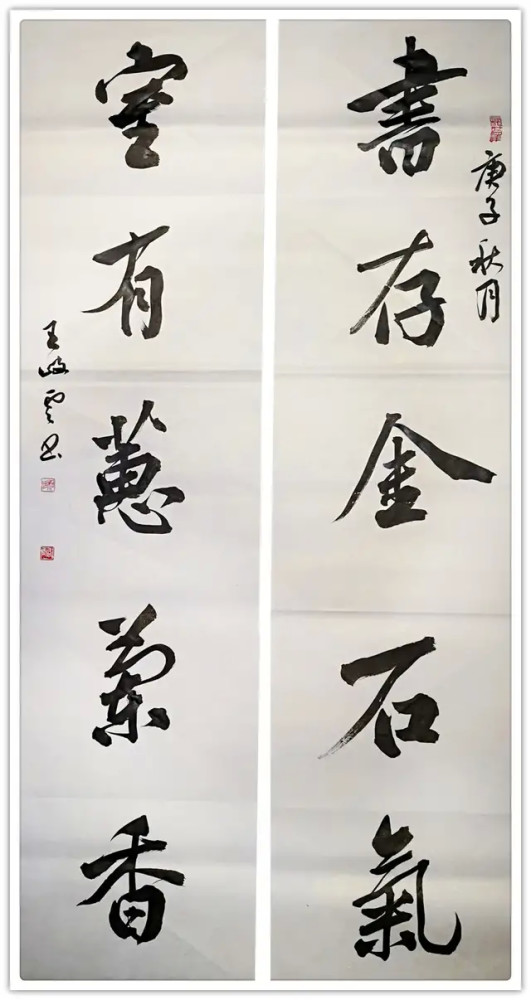 書存金石氣
庚子秋月
室有蕙蘭香
王岐雲书